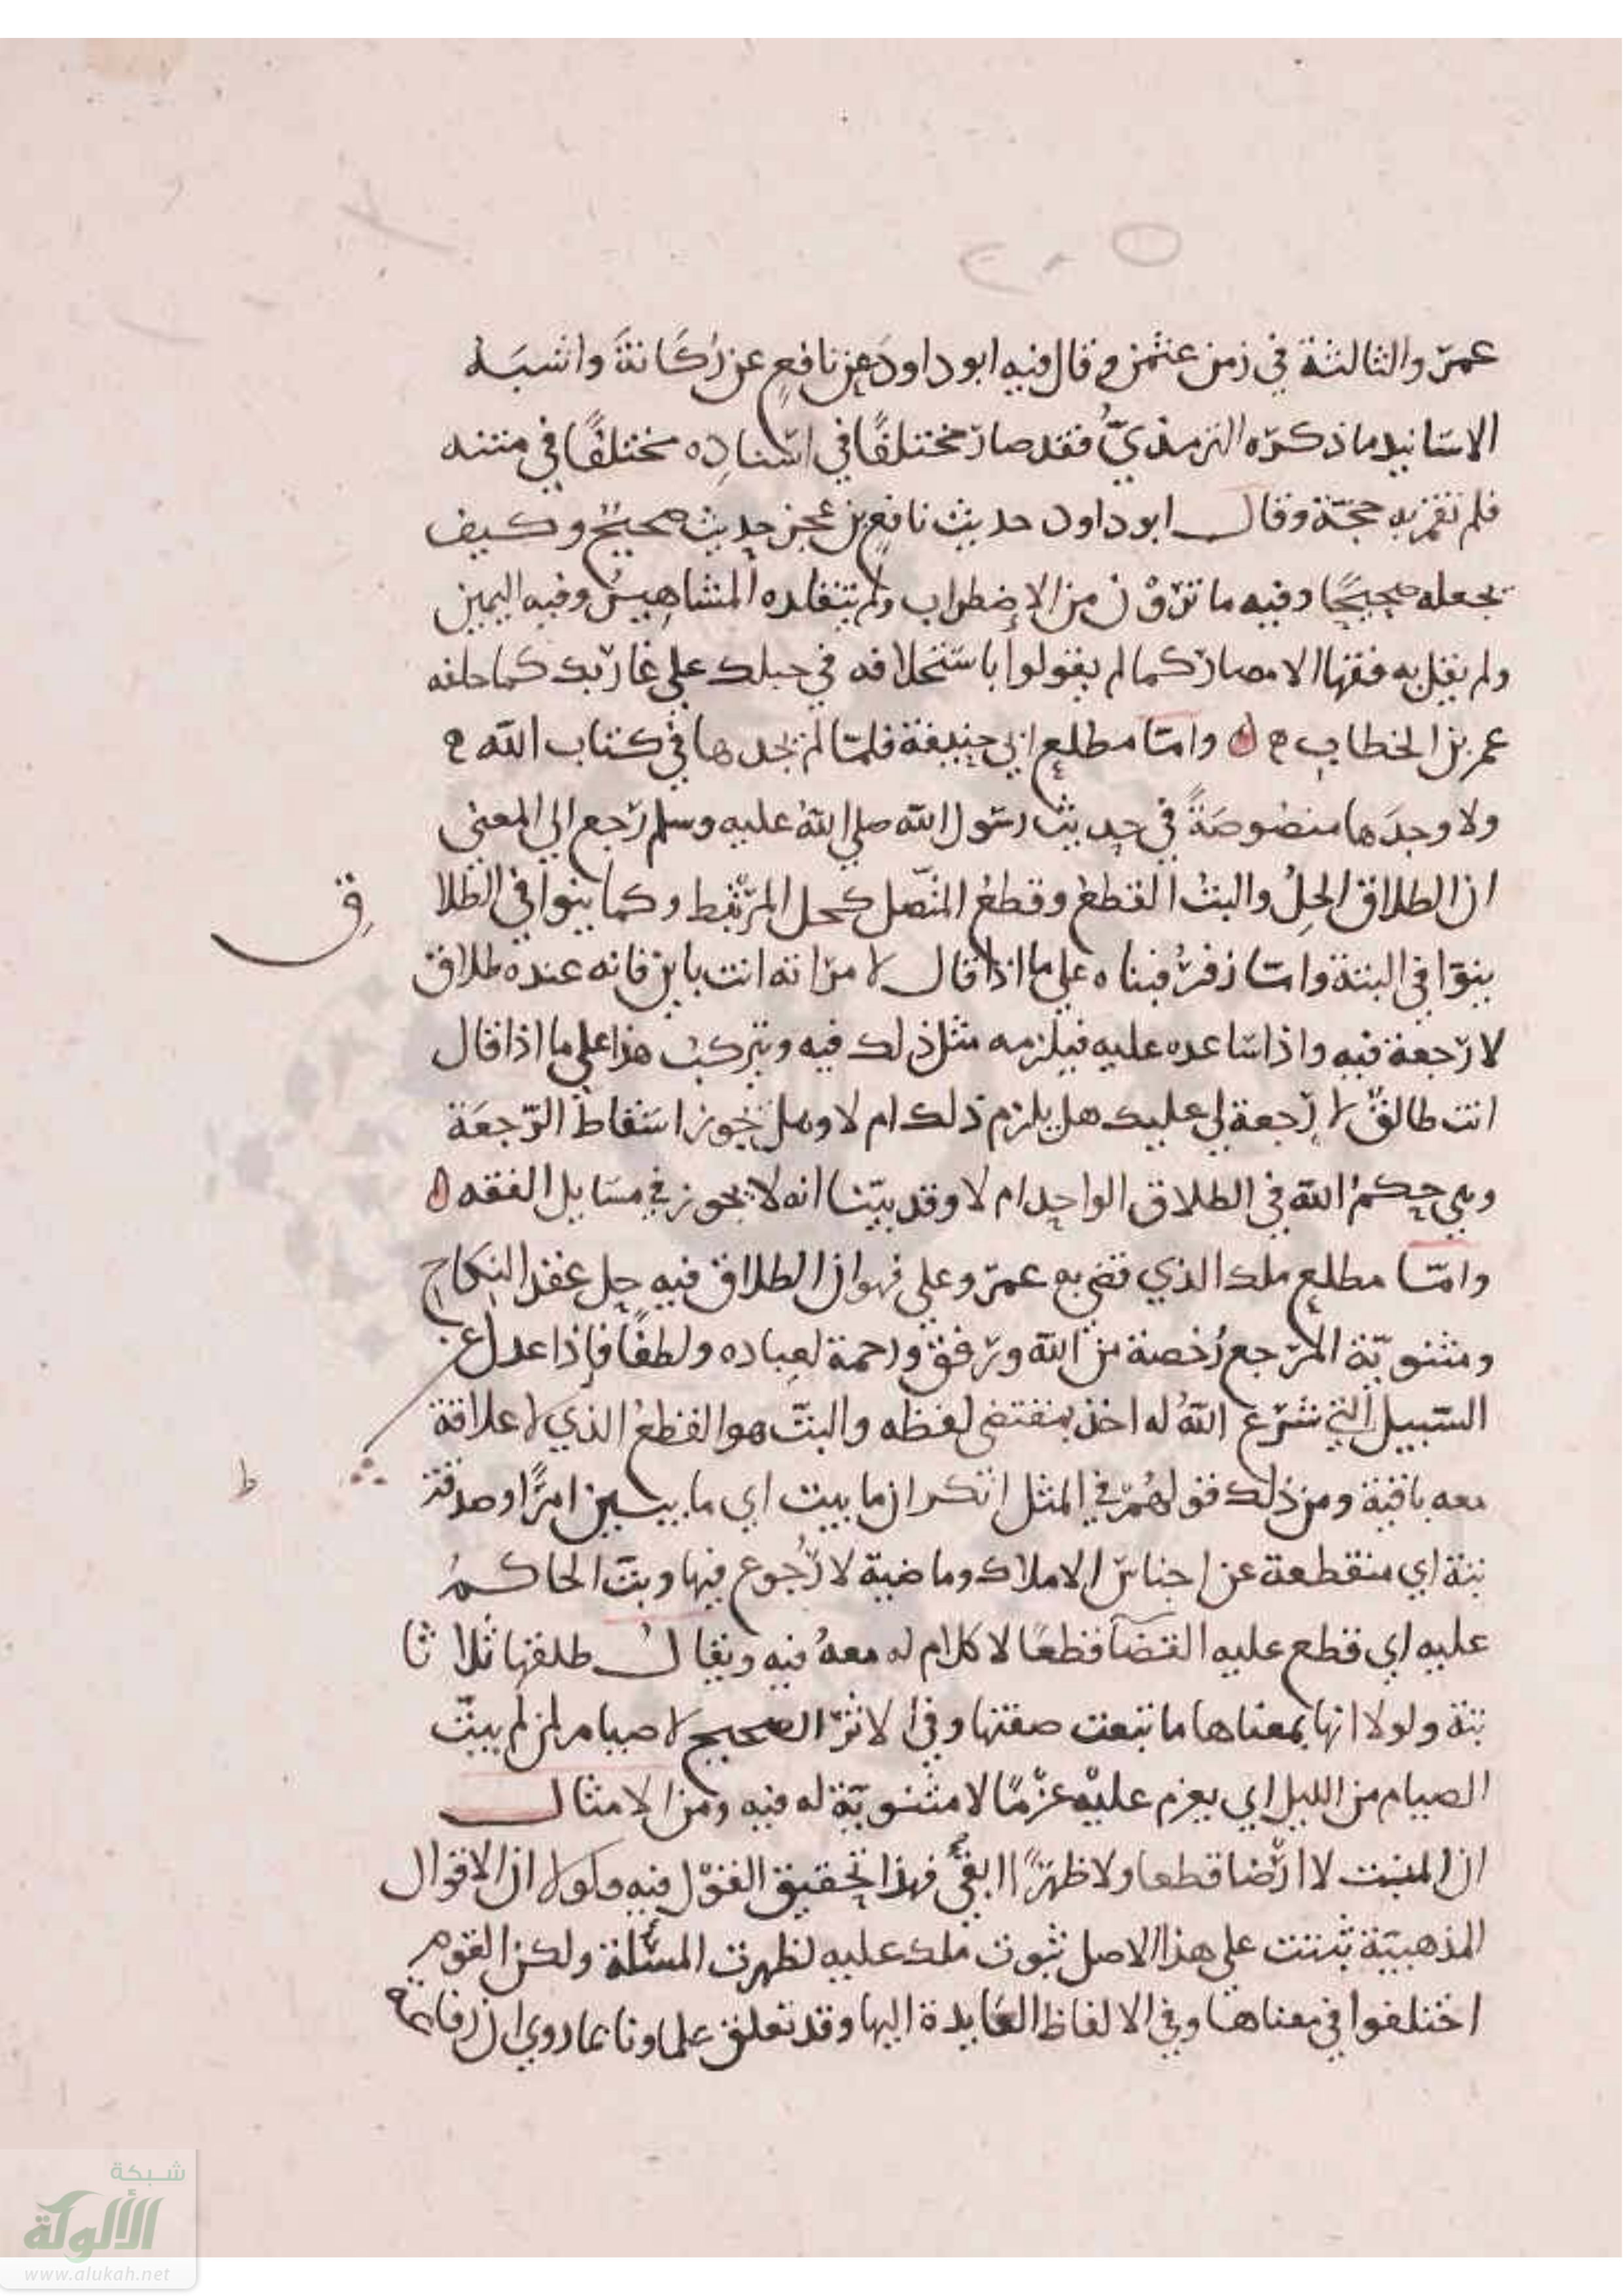 عمر والثالثة في زمن عثمن وقال فيه ابو داود عن نافع عن ركانة واشبه
الاسانيد ما ذكره الترمذي فقد صار مختلفا في اسناده مختلفا في متنه
فلم تقم به حجة وقال ابو داود حديث نافع بن عجز حديث صحيح وكيف
يجعله صحيحا وفيه ما ترون من الاضطراب ولم يتقلده المشاهير وفيه اليمين
ولم يقل به فقها الامصار كما لم يقولوا باستحلافه في حبلك على غاربك كما حلفه
عمر بن الخطاب ه واما مطلع ابي حنيفة فلما لم يجدها في كتاب الله
ولا وجدها منصوصة في حديث رسول الله صلى الله عليه وسلم رجع الى المعنى
ان الطلاق الحل والبت القطع وقطع المتصل كحل المرتبط وكما ينوا في الطلا
ق
ينوا في البتة واما زفر فبناه على ما اذا قال لامراته انت باين فانه عنده طلاق
لا رجعة فيه واذا ساعده عليه فيلزمه مثل ذلك فيه ويتركب هذا على ما اذا قال
انت طالق لا رجعة لي عليك هل يلزم ذلك ام لا وهل يجوز اسقاط الرجعة
وهي حكم الله في الطلاق الواحد ام لا وقد بينا انه لا يجوز في مسايل الفقه ه
واما مطلع ملك الذي قضى به عمر وعلي فهو ان الطلاق فيه حل عقد النكاح
ومثنوية المرجع رخصة من الله ورفق ورحمة لعباده ولطفا فاذا عدل عن
السبيل التي شرع الله له اخذ بمقتضى لفظه والبت هو القطع الذي لا علاقة
معه باقية ومن ذلك قولهم في المثل ان ما يبت اي ما يبين امرا وصدقة
ط
بتة اي منقطعة عن اجناس الاملاك وماضية لا رجوع فيها وبت الحاكم
عليه اي قطع عليه القضا قطعا لا كلام له معه فيه ويقال طلقها ثلاثا
بتة ولولا انها بمعناها ما تبعت صفتها وفي الاثر الصحيح لا صيام لمن لم يبت
الصيام من الليل اي يعزم عليه عزما لا مثنوية له فيه ومن الامثال
ان المنبت لا ارضا قطعا ولا ظهرا ابقى فهذا تحقيق القول فيه ولولا ان الاقوال
المذهبية ثبتت على هذا الاصل ثبوت ملك عليه لظهرت المسئلة ولكن القوم
اختلفوا في معناها وفي الالفاظ العايدة اليها وقد تعلق علماونا بما روي ان رفاعة
شبكة
الألوكة
www.alukah.net